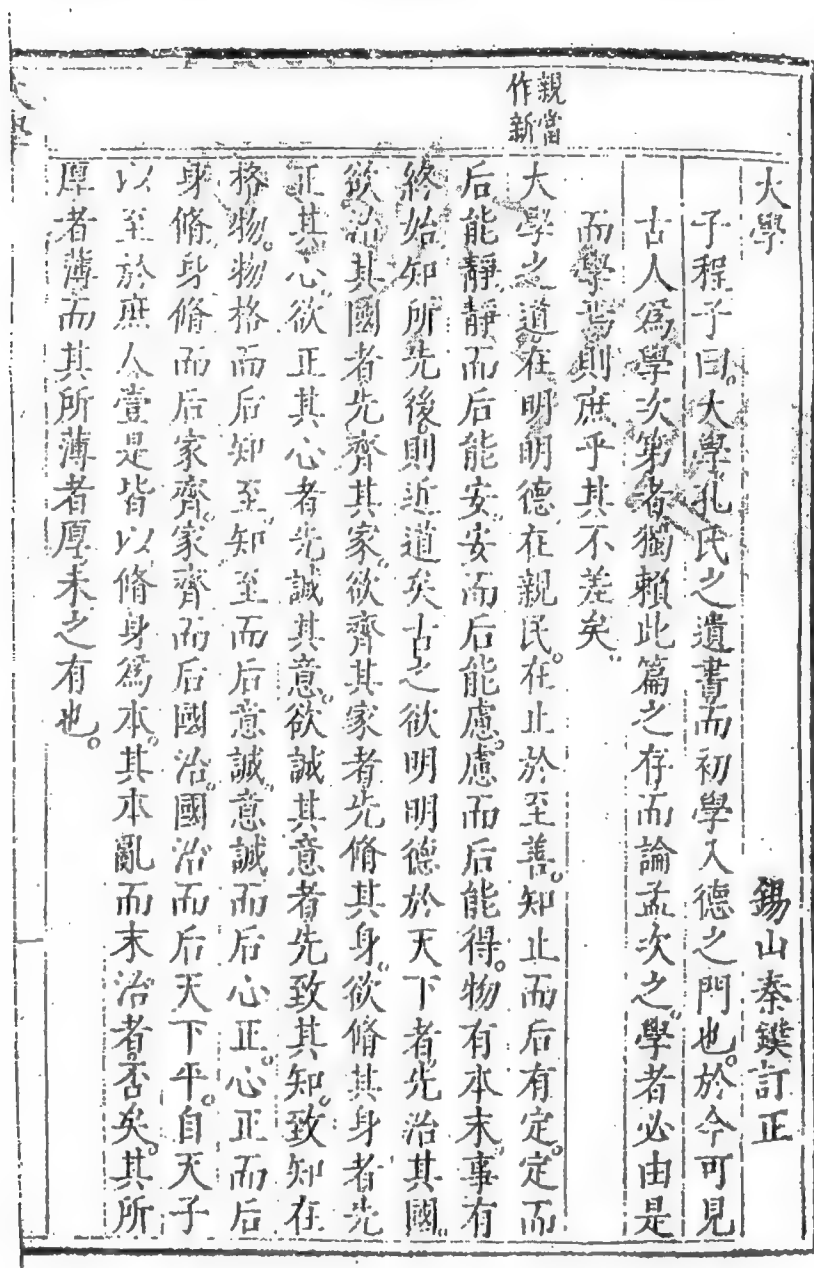 大學
錫山秦鏷訂正
子程子曰。大學孔氏之遺書而初學入德之門也。於今可見
古人爲學次第者獨賴此篇之存而論孟次之。學者必由是
而學焉則庶乎其不差矣。
親當
作新
大學之道在明明德在親民。在止於至善。知止而后有定。定而
后能靜靜而后能安。安而后能慮。慮而后能得。物有本末。事有
終始知所先後。則近道矣古之欲明明德於天下者先治其國。
欲治其國者先齊其家。欲齊其家者先脩其身。欲脩其身者先
正其心。欲正其心者先誠其意。欲誠其意者先致其知。致知在
格物。物格而后知至。知至而后意誠。意誠而后心正。心正而后
身脩。身脩而后家齊。家齊而后國治。國治而后天下平。自天子
以至於庶人壹是皆以脩身爲本。其本亂而末治者否矣。其所
厚者薄而其所薄者厚。未之有也。
大學